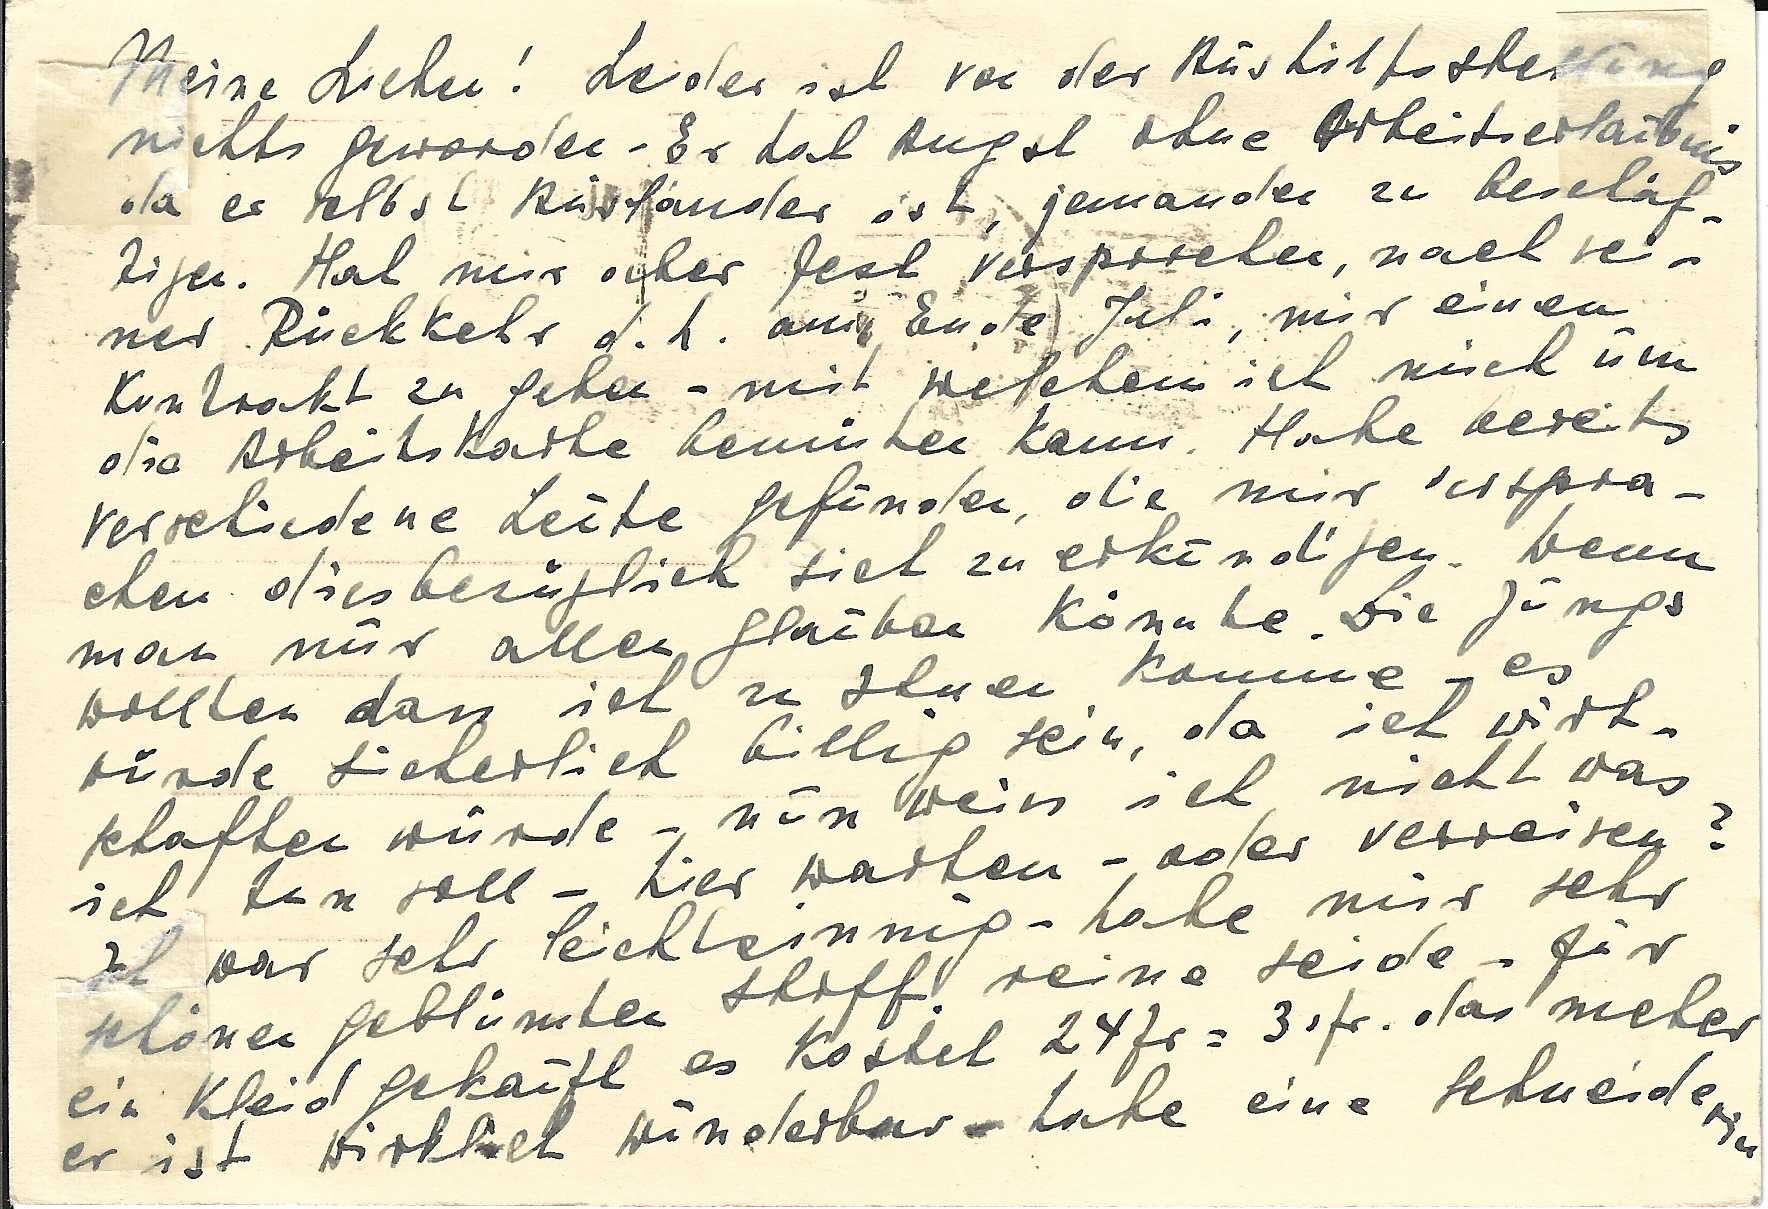 Meine Lieben! Leider ist von der Aushilfsstellung
nichts geworden - Er hat Angst ohne Arbeitserlaubnis
da er selbst Ausländer ist, jemanden zu beschäf-
tigen. Hat mir aber fest versprochen, nach sei-
ner Rückkehr d.h. am Ende Juli, mir einen
Kontrakt zu geben - mit welchem ich mich um
die Arbeitskarte bemühen kann. Habe bereits
verschiedene Leute gefunden, die mir verspra-
chen diesbezüglich sich zu erkündigen. Wenn
man nur allen glauben könnte. Die Jungs
wollten dass ich zu Ihnen komme - es
würde sicherlich billig sein, da ich wirt-
schaften würde - nun weiss ich nicht was
ich tun soll - hier warten - oder verreisen?
Ich war sehr leichtsinnig - habe mir sehr
schönen geblümten Stoff reine Seide - für
ein Kleid gekauft es kostet 24 fr = 3 sfr. das meter
er ist wirklich wunderbar - habe eine Schneiderin